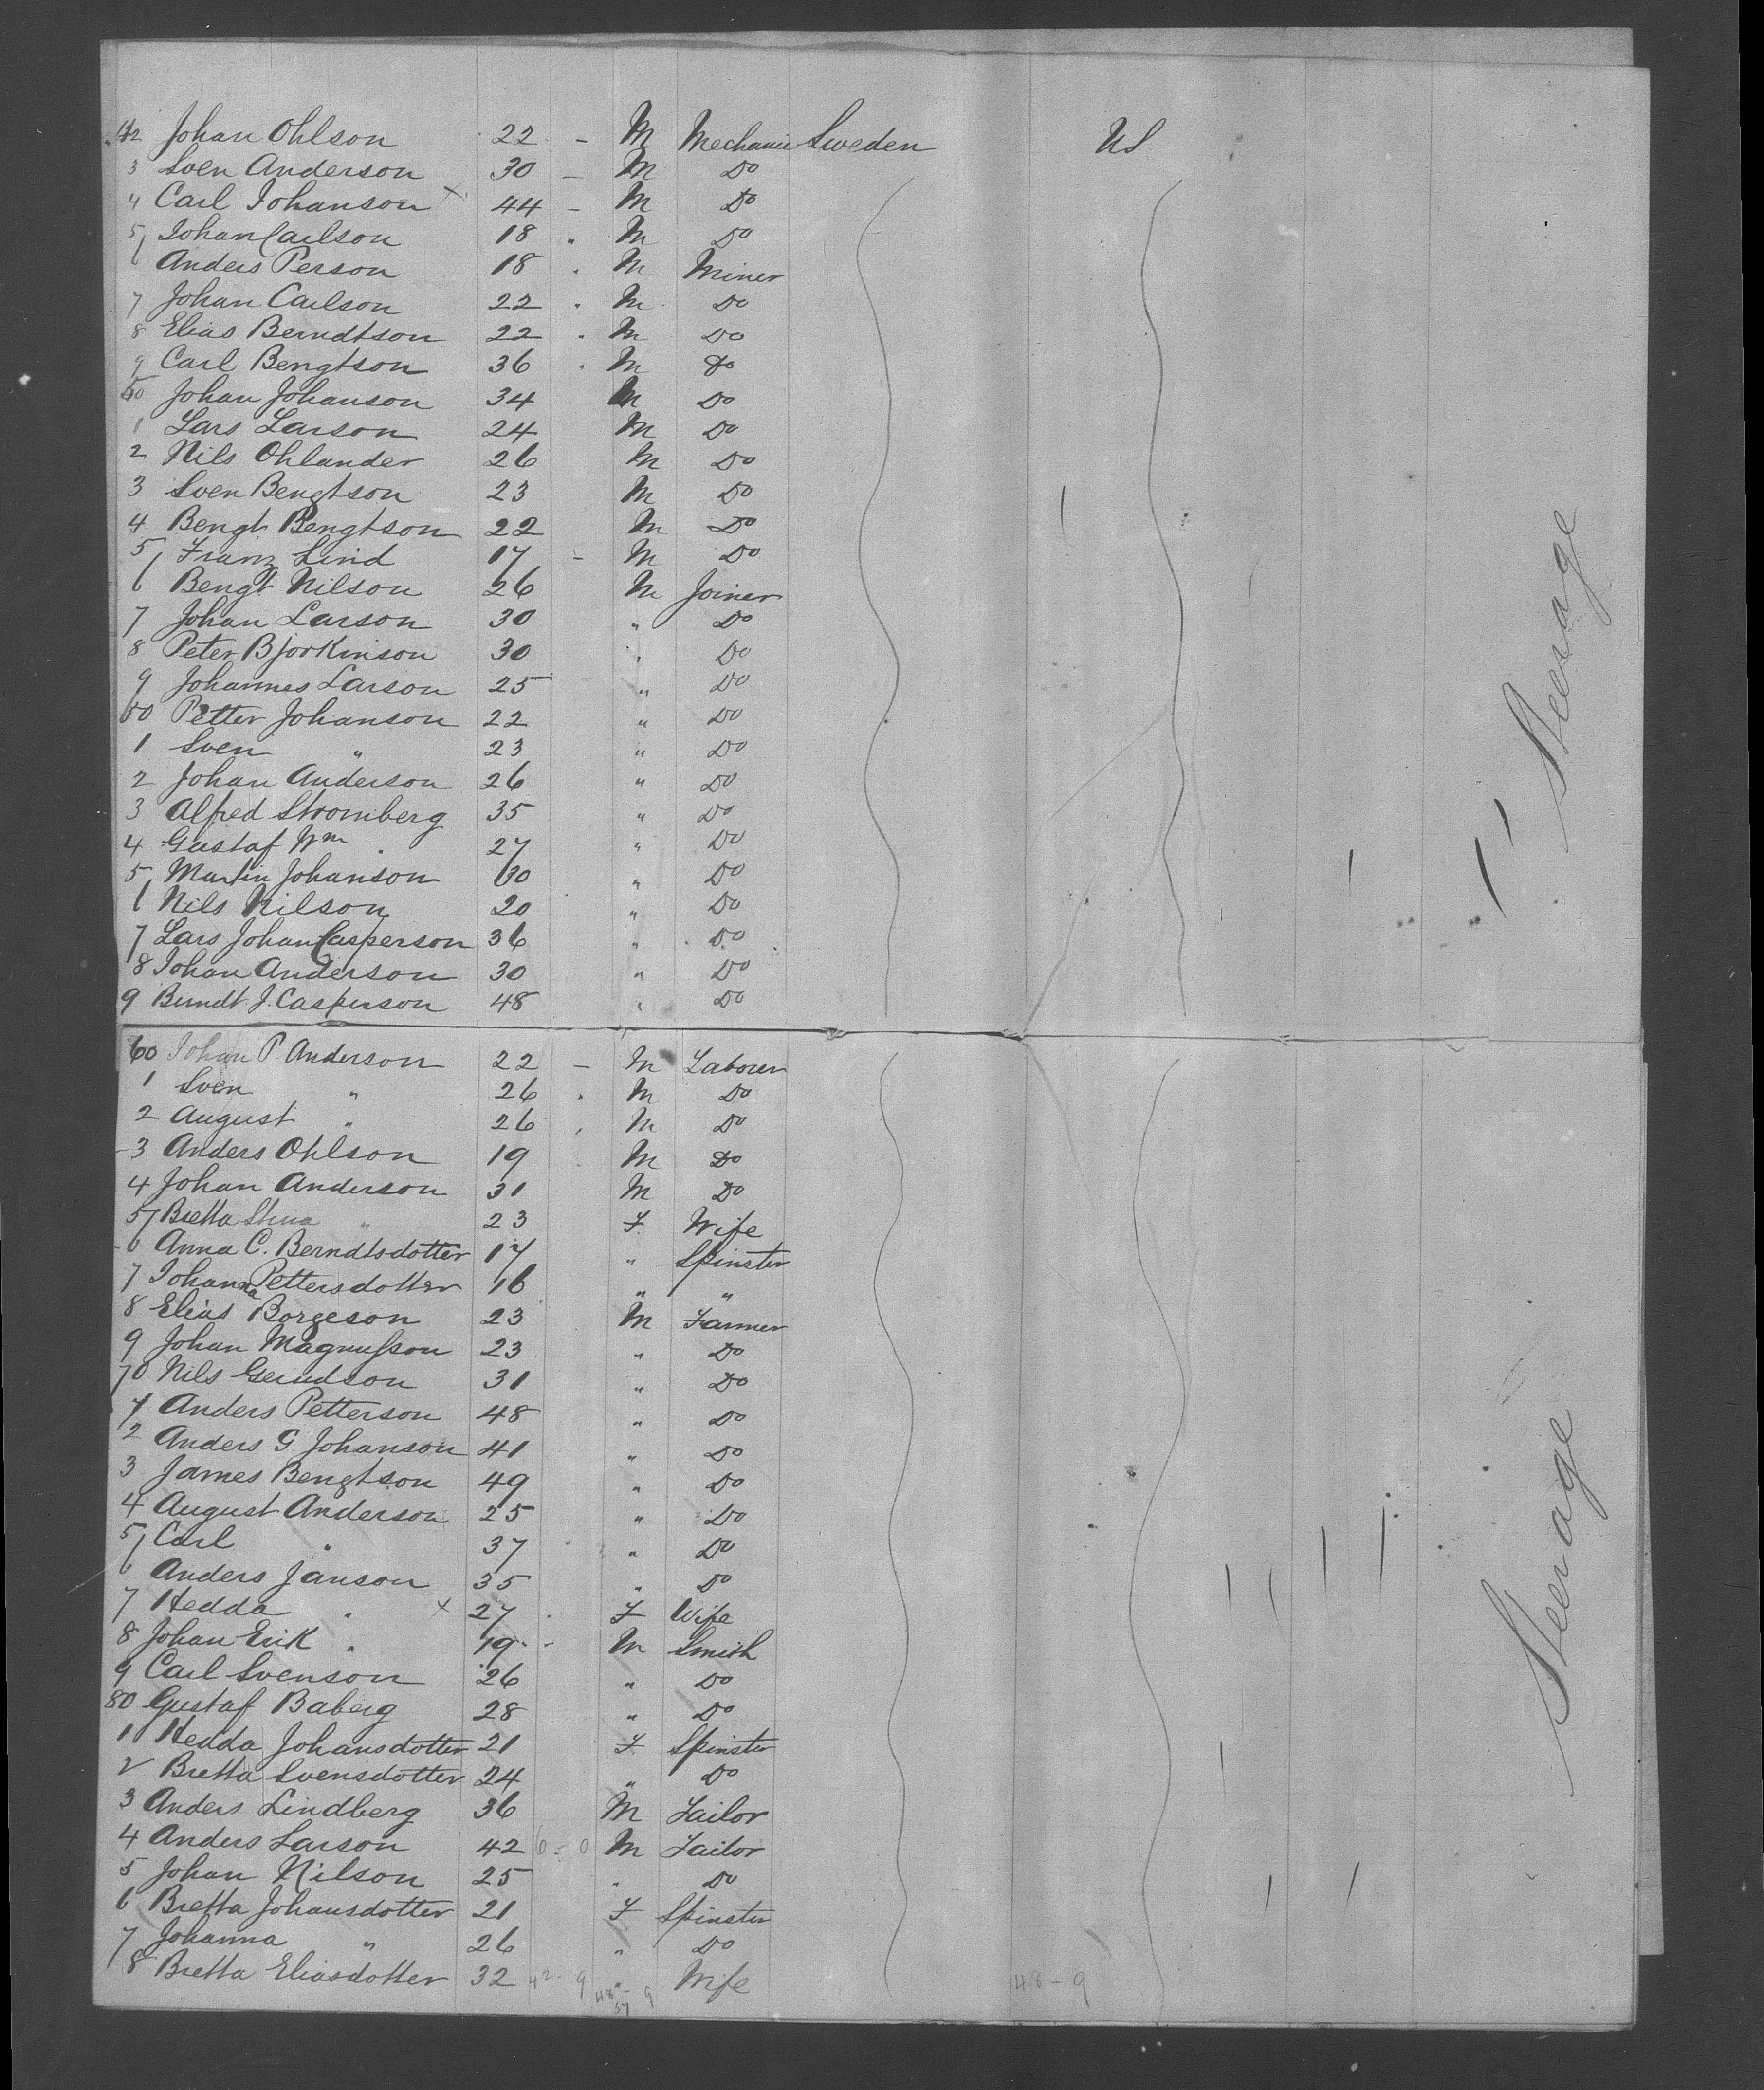 42 Johan Ohlson 22 - M Mechanic Sweden US
3 Sven Anderson 30 - M Do
4 Carl Johanson x 44 - M Do
5 Johan Carlson 18 " M Do
6 Anders Person 18 " M Miner
7 Johan Carlson 22 " M Do
8 Elias Berndtson 22 " M Do
9 Carl Bengtson 36 " M Do
50 Johan Johanson 34 M Do
1 Lars Larson 24 M Do
2 Nils Ohlander 26 M Do
3 Sven Bengtson 23 M Do
4 Bengt Bengtson 22 M Do
5 Franz Lind 17 - M Do
6 Bengt Nilson 26 M Joiner
7 Johan Larson 30 " Do
8 Peter Bjorkinson 30 " Do
9 Johannes Larson 25 " Do
50 Petter Johanson 22 " Do
1 Sven " 23 " Do
2 Johan Anderson 26 " Do
3 Alfred Stromberg 35 " Do
4 Gustaf Wm " 27 " Do
5 Martin Johanson 30 " Do
6 Nils Nilson 20 " Do
7 Lars Johan Casperson 36 " Do
8 Johan Anderson 30 " Do
9 Berndt J. Casperson 48 " Do
Steerage
60 Johan P Anderson 22 - M Laborer
1 Sven " 26 " M Do
2 August " 26 " M Do
3 Anders Ohlson 19 M Do
4 Johan Anderson 31 M Do
5 Bretta Stina " 23 F Wife
6 Anna C. Berndtsdotter 17 " Spinster
7 Johanna Pettersdotter 16 " "
8 Elias Borgeson 23 M Farmer
9 Johan Magnusson 23 " Do
70 Nils Gerudson 31 " Do
1 Anders Petterson 48 " Do
2 Anders G Johanson 41 " Do
3 James Bengtson 49 " Do
4 August Anderson 25 " Do
5 Carl " 37 " Do
6 Anders Janson 35 " Do
7 Hedda " x 27 F Wife
8 Johan Erik " 19 - M Smith
9 Carl Svenson 26 " Do
80 Gustaf Baberg 28 " Do
1 Hedda Johansdotter 21 F Spinster
2 Bretta Svensdotter 24 " Do
3 Anders Lindberg 36 M Tailor
4 Anders Larson 42 6 - 0 M Tailor
5 Johan Nilson 25 " Do
6 Bretta Johansdotter 21 F Spinster
7 Johanna " 26 " Do
8 Bretta Eliasdotter 32 42 - 9 " Wife 48 - 9
48 - 9
57
Steerage